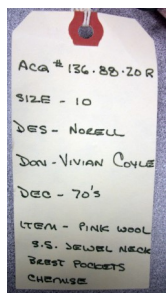 ACQ # 136.88.20R
SIZE - 10
DES - NORELL
DON - VIVIAN COYLE
DEC - 70's
ITEM - PINK WOOL
S.S. JEWEL NECK
BREST POCKETS
CHEMISE